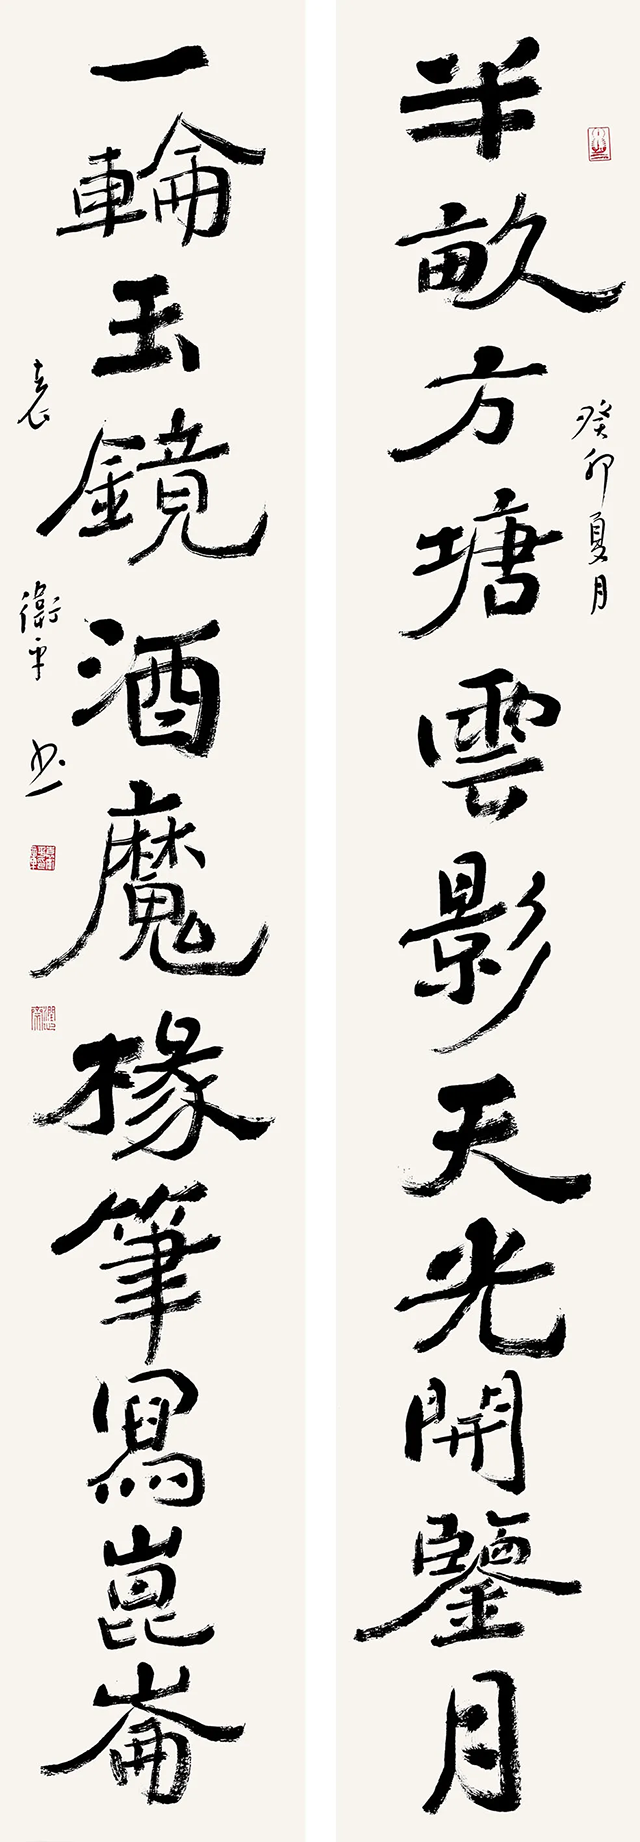 半畝方塘雲影天光開鑒月
癸卯夏月
一輪玉鏡酒魔椽筆寫崑崙
袁衛平书